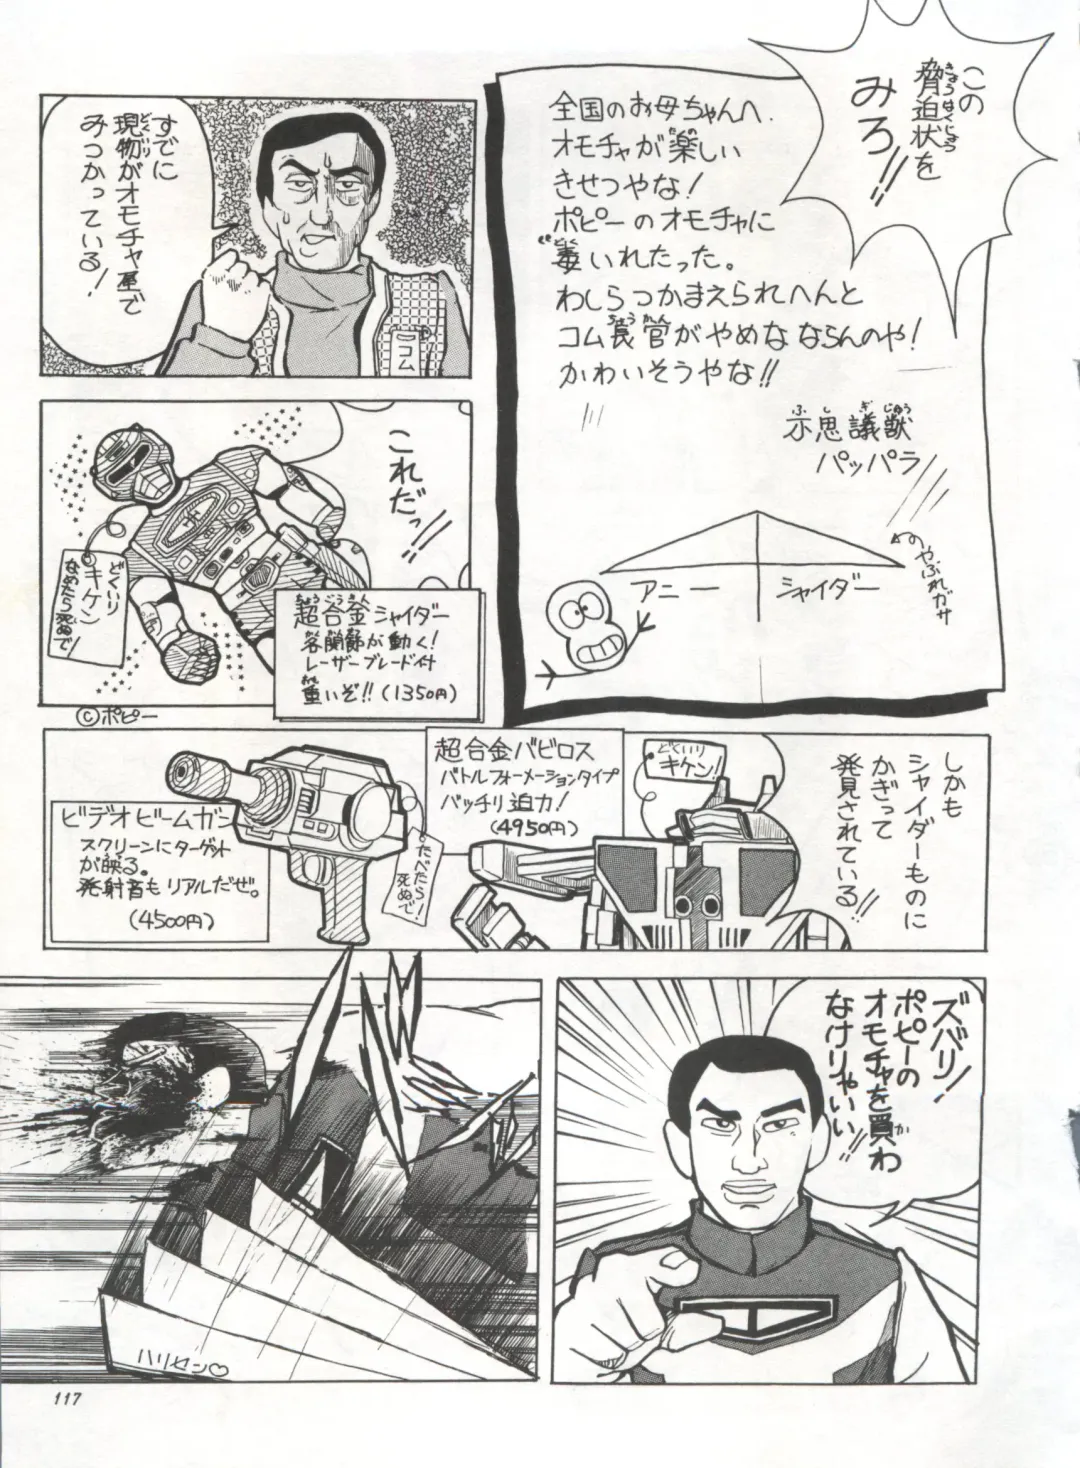 この
脅迫状を
みろ!!
きょうはくじょう
全国のお母ちゃんへ.
オモチャが楽しい
きせつやな!
ポピーのオモチャに
毒いれたった。
わしらつかまえられへんと
コム長官がやめなならんのや!
ちょうかん
かわいそうやな!!
不思議獣
ふしぎじゅう
パッパラ
アニー
シャイダー
やぶれガサ
すでに
現物がオモチャ屋で
どくいり
みつかっている!
コム
これだっ!!
どくいり
キケン
なめたら死ぬで!
超合金シャイダー
ちょうごうきん
各関節が動く!
レーザーブレード付
重いぞ!!(1350円)
©ポピー
しかも
シャイダーものに
かぎって
発見されている!!
どくいり
キケン!
超合金バビロス
バトルフォーメーションタイプ
バッチリ迫力!
(4950円)
たべたら
死ぬで!
ビデオビームガン
スクリーンにターゲット
が映る。
発射音もリアルだぜ。
(4500円)
ズバリ!
ポピーの
オモチャを買わ
か
なけりゃいい!!
ハリセン♡
117